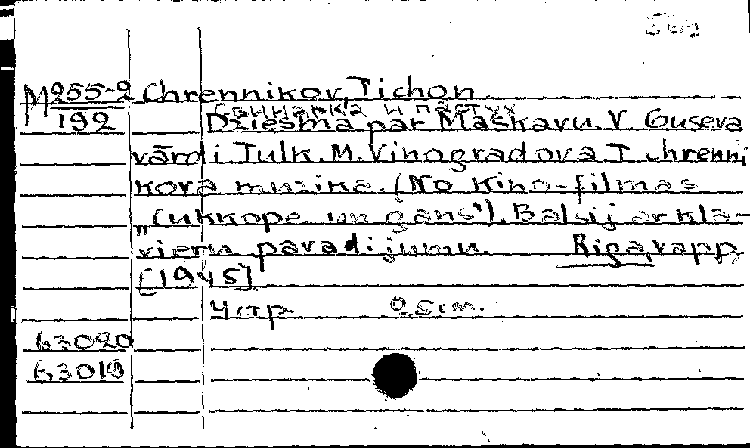 M 255-2 Chrennikov, Tichon
192 Dziesma par Maskavu. V. Guseva
vārdi Tulk. M. Vinogradova T. Chrenni
kova muzika. (No kino-filmas
„Cukkope un gans"). Balsij ar kla-
vieru pavadijumu. Riga, vapp
[1945]
4 стр
63020
63019